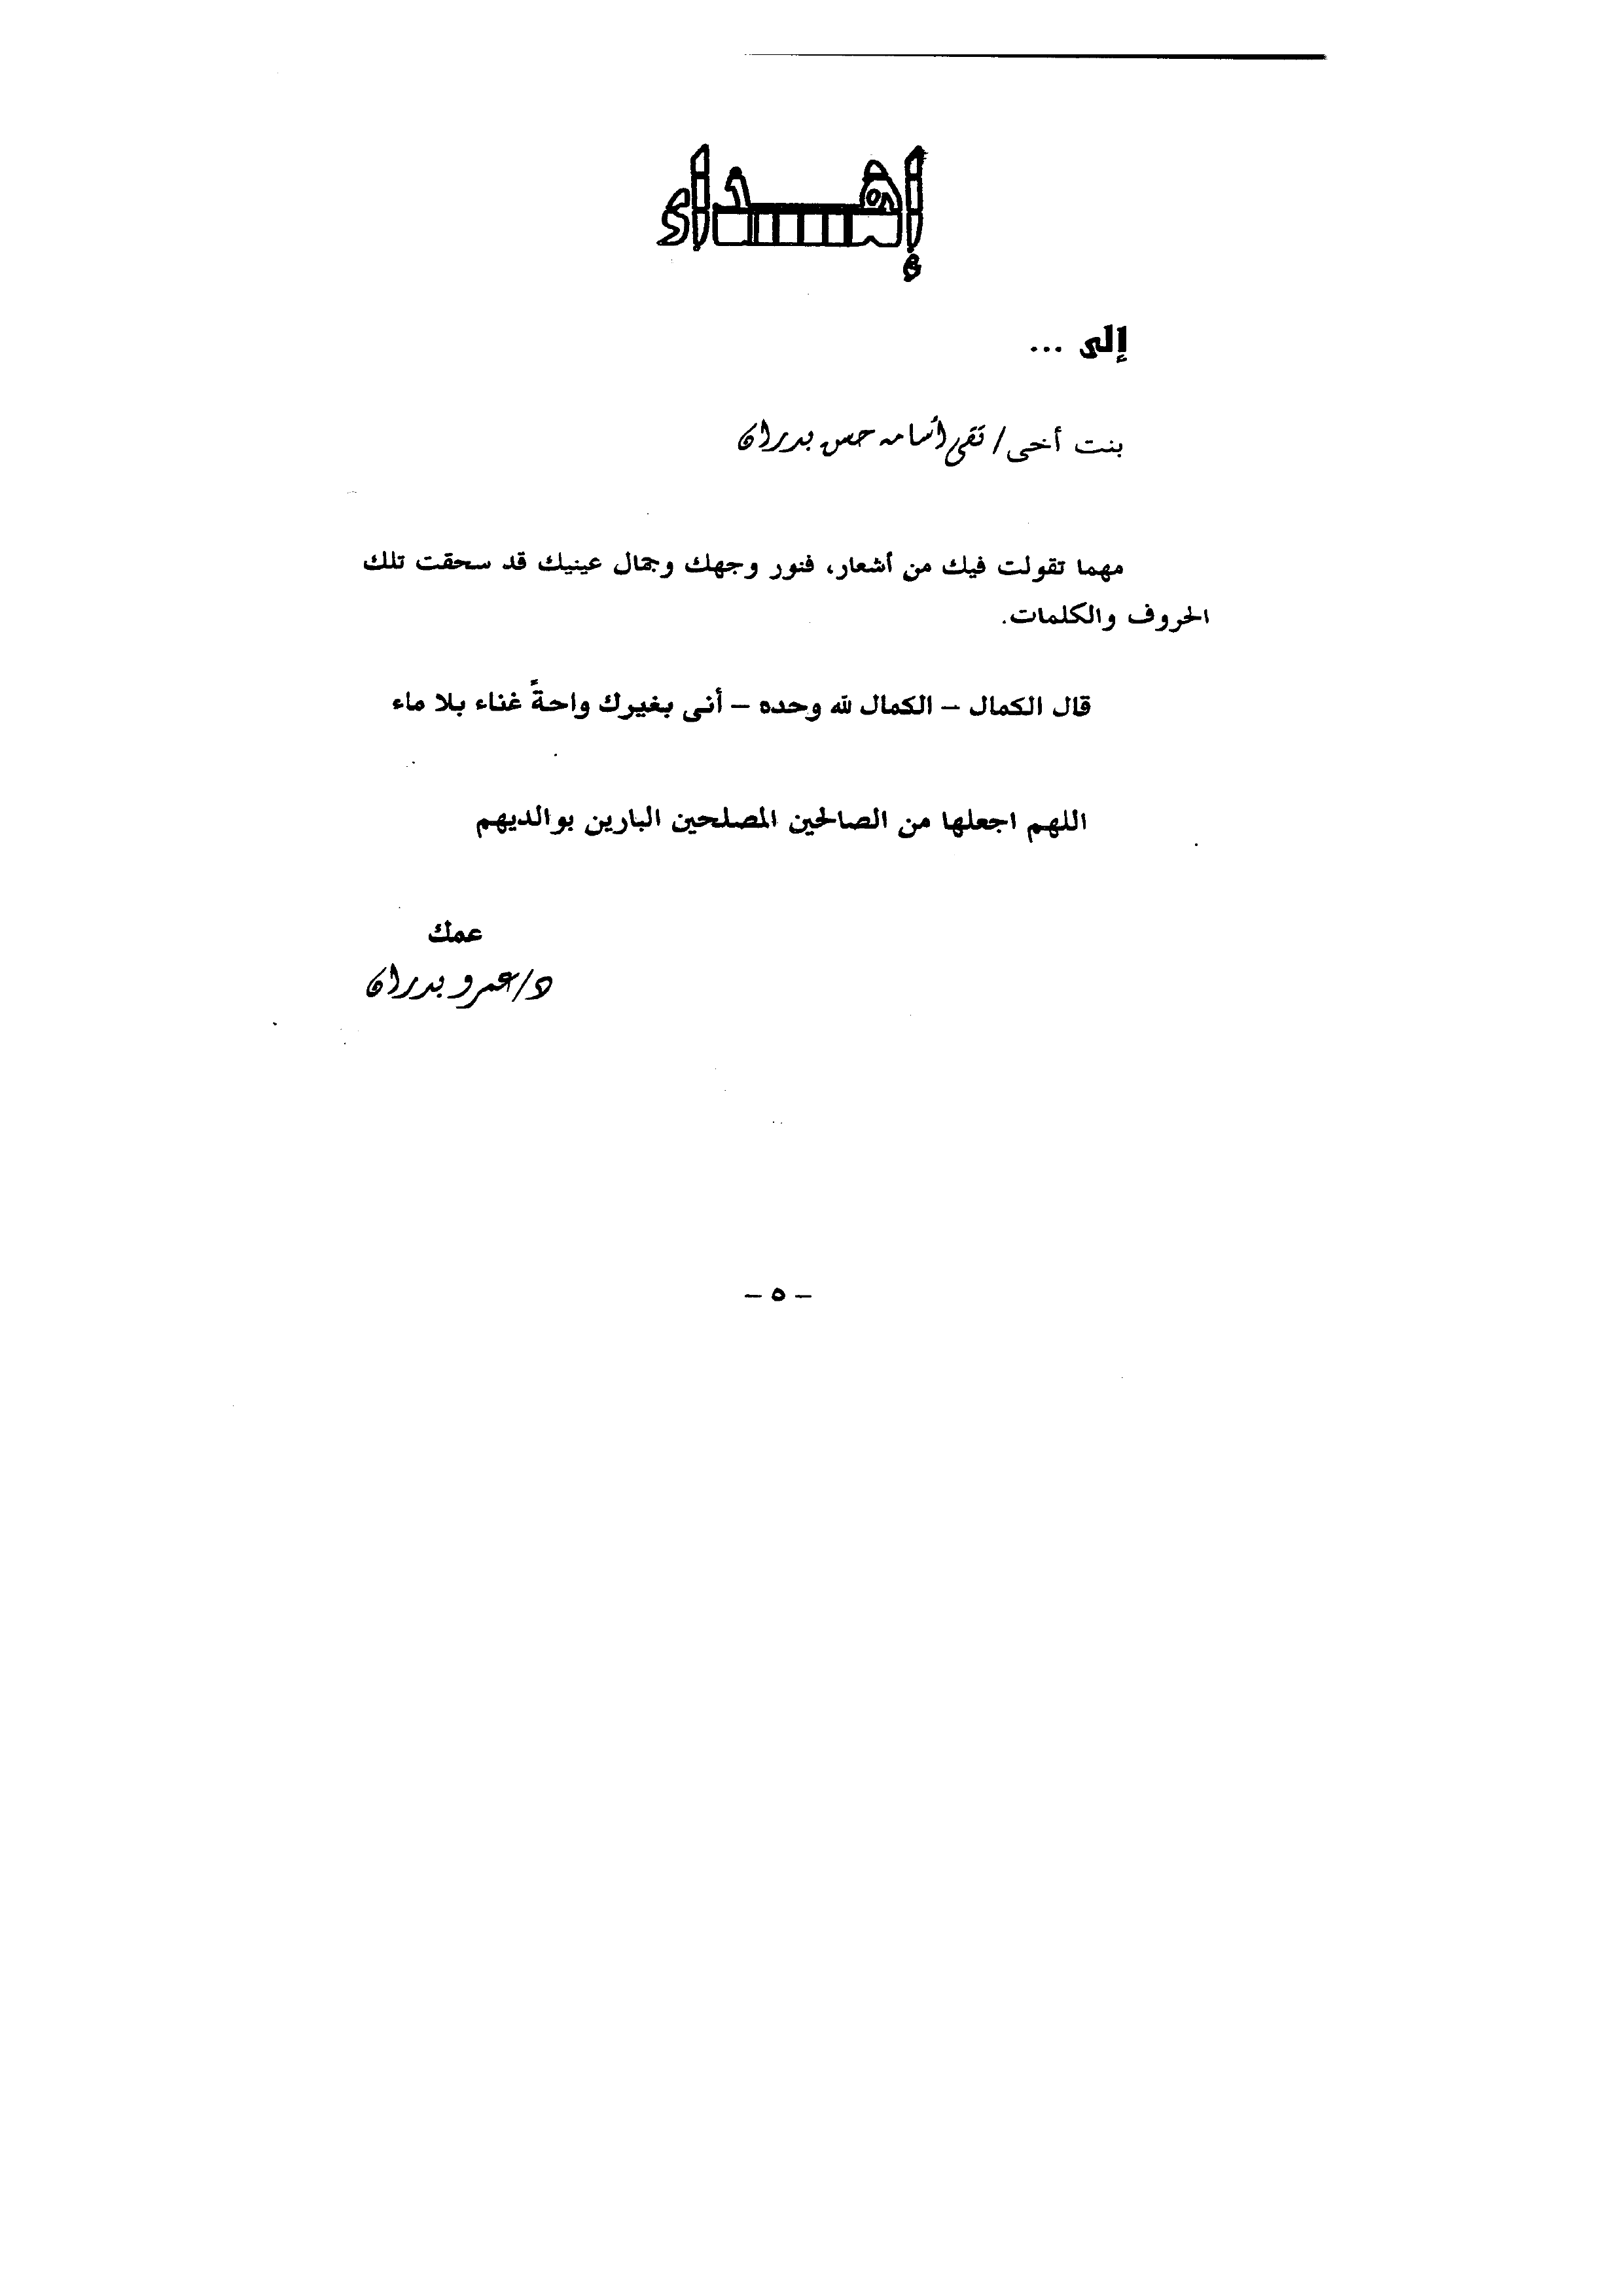 إهداء
إلى ...
بنت أخى / تقى أسامه حسن بدران
مهما تقولت فيك من أشعار، فنور وجهك وجمال عينيك قد سحقت تلك
الحروف والكلمات.
قال الكمال – الكمال لله وحده – أنى بغيرك واحةً غناء بلا ماء
اللهم اجعلها من الصالحين المصلحين البارين بوالديهم
عمك
د/عمرو بدران
– ٥ –